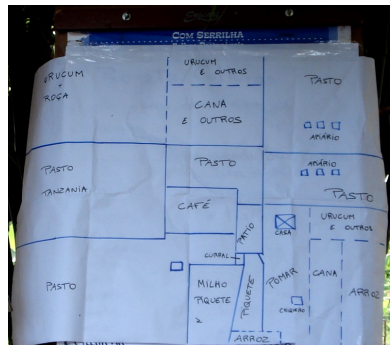 COM SERRILHA
URUCUM
+
ROÇA
URUCUM
E OUTROS
CANA
E OUTROS
PASTO
APIÁRIO
PASTO
TANZANIA
PASTO
APIÁRIO
PASTO
CAFÉ
PATIO
CASA
URUCUM
E OUTROS
CURRAL
PASTO
MILHO
PIQUETE
2
PIQUETE
POMAR
CHIQUEIRO
CANA
ARROZ
ARROZ